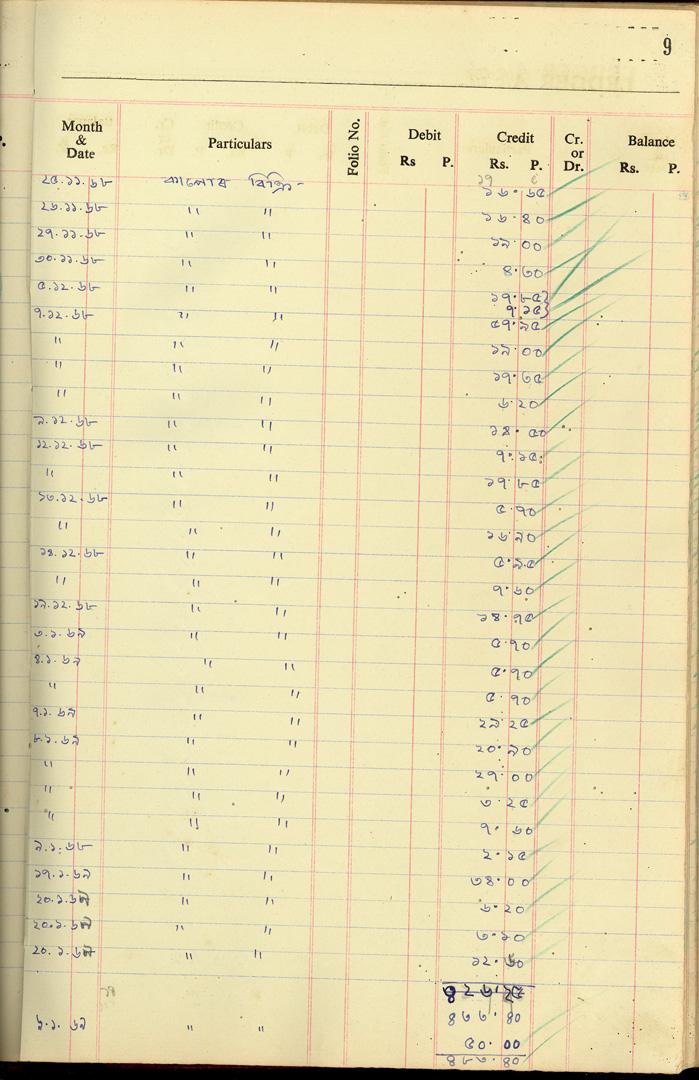 9
Month & Date Particulars Folio No. Debit Rs P. Credit Rs. P. Cr. or Dr. Balance Rs. P.
২৫.১১.৬৮ কালোর বিক্রি - ১৬.৬৫
২৬.১১.৬৮ " " ১৬.৪০
২৭.১১.৬৮ " " ১৯.০০
৩০.১১.৬৮ " " ৪.৩০
৫.১২.৬৮ " " ১৭.৮৫
৭.১৫
৭.১২.৬৮ " " ৫৭.৯৫
" " " ১৯.০০
" " " ১৭.৩৫
" " " ৬.২০
৯.১২.৬৮ " " ১৪.৫০
১২.১২.৬৮ " " ৭.১৫
" " " ১৭.৮৫
১৩.১২.৬৮ " " ৫.৭০
" " " ১৬.৯০
১৪.১২.৬৮ " " ৫.৯৫
" " " ৭.৬০
১৯.১২.৬৮ " " ১৪.৭৫
৩.১.৬৯ " " ৫.৭০
৪.১.৬৯ " " ৫.৭০
" " " ৫.৭০
৭.১.৬৯ " " ২৯.২৫
৮.১.৬৯ " " ২০.৯০
" " " ২৭.০০
" " " ৩.২৫
" " " ৭.৬০
৯.১.৬৮ " " ২.১৫
১৭.১.৬৯ " " ৩৪.০০
২০.১.৬৯ " " ৬.২০
২০.১.৬৯ " " ৩.১০
২০.১.৬৯ " " ১২.৬০
৪৩৩.৪০
৯.১.৬৯ " " ৫০.০০
৪৮৩.৪০